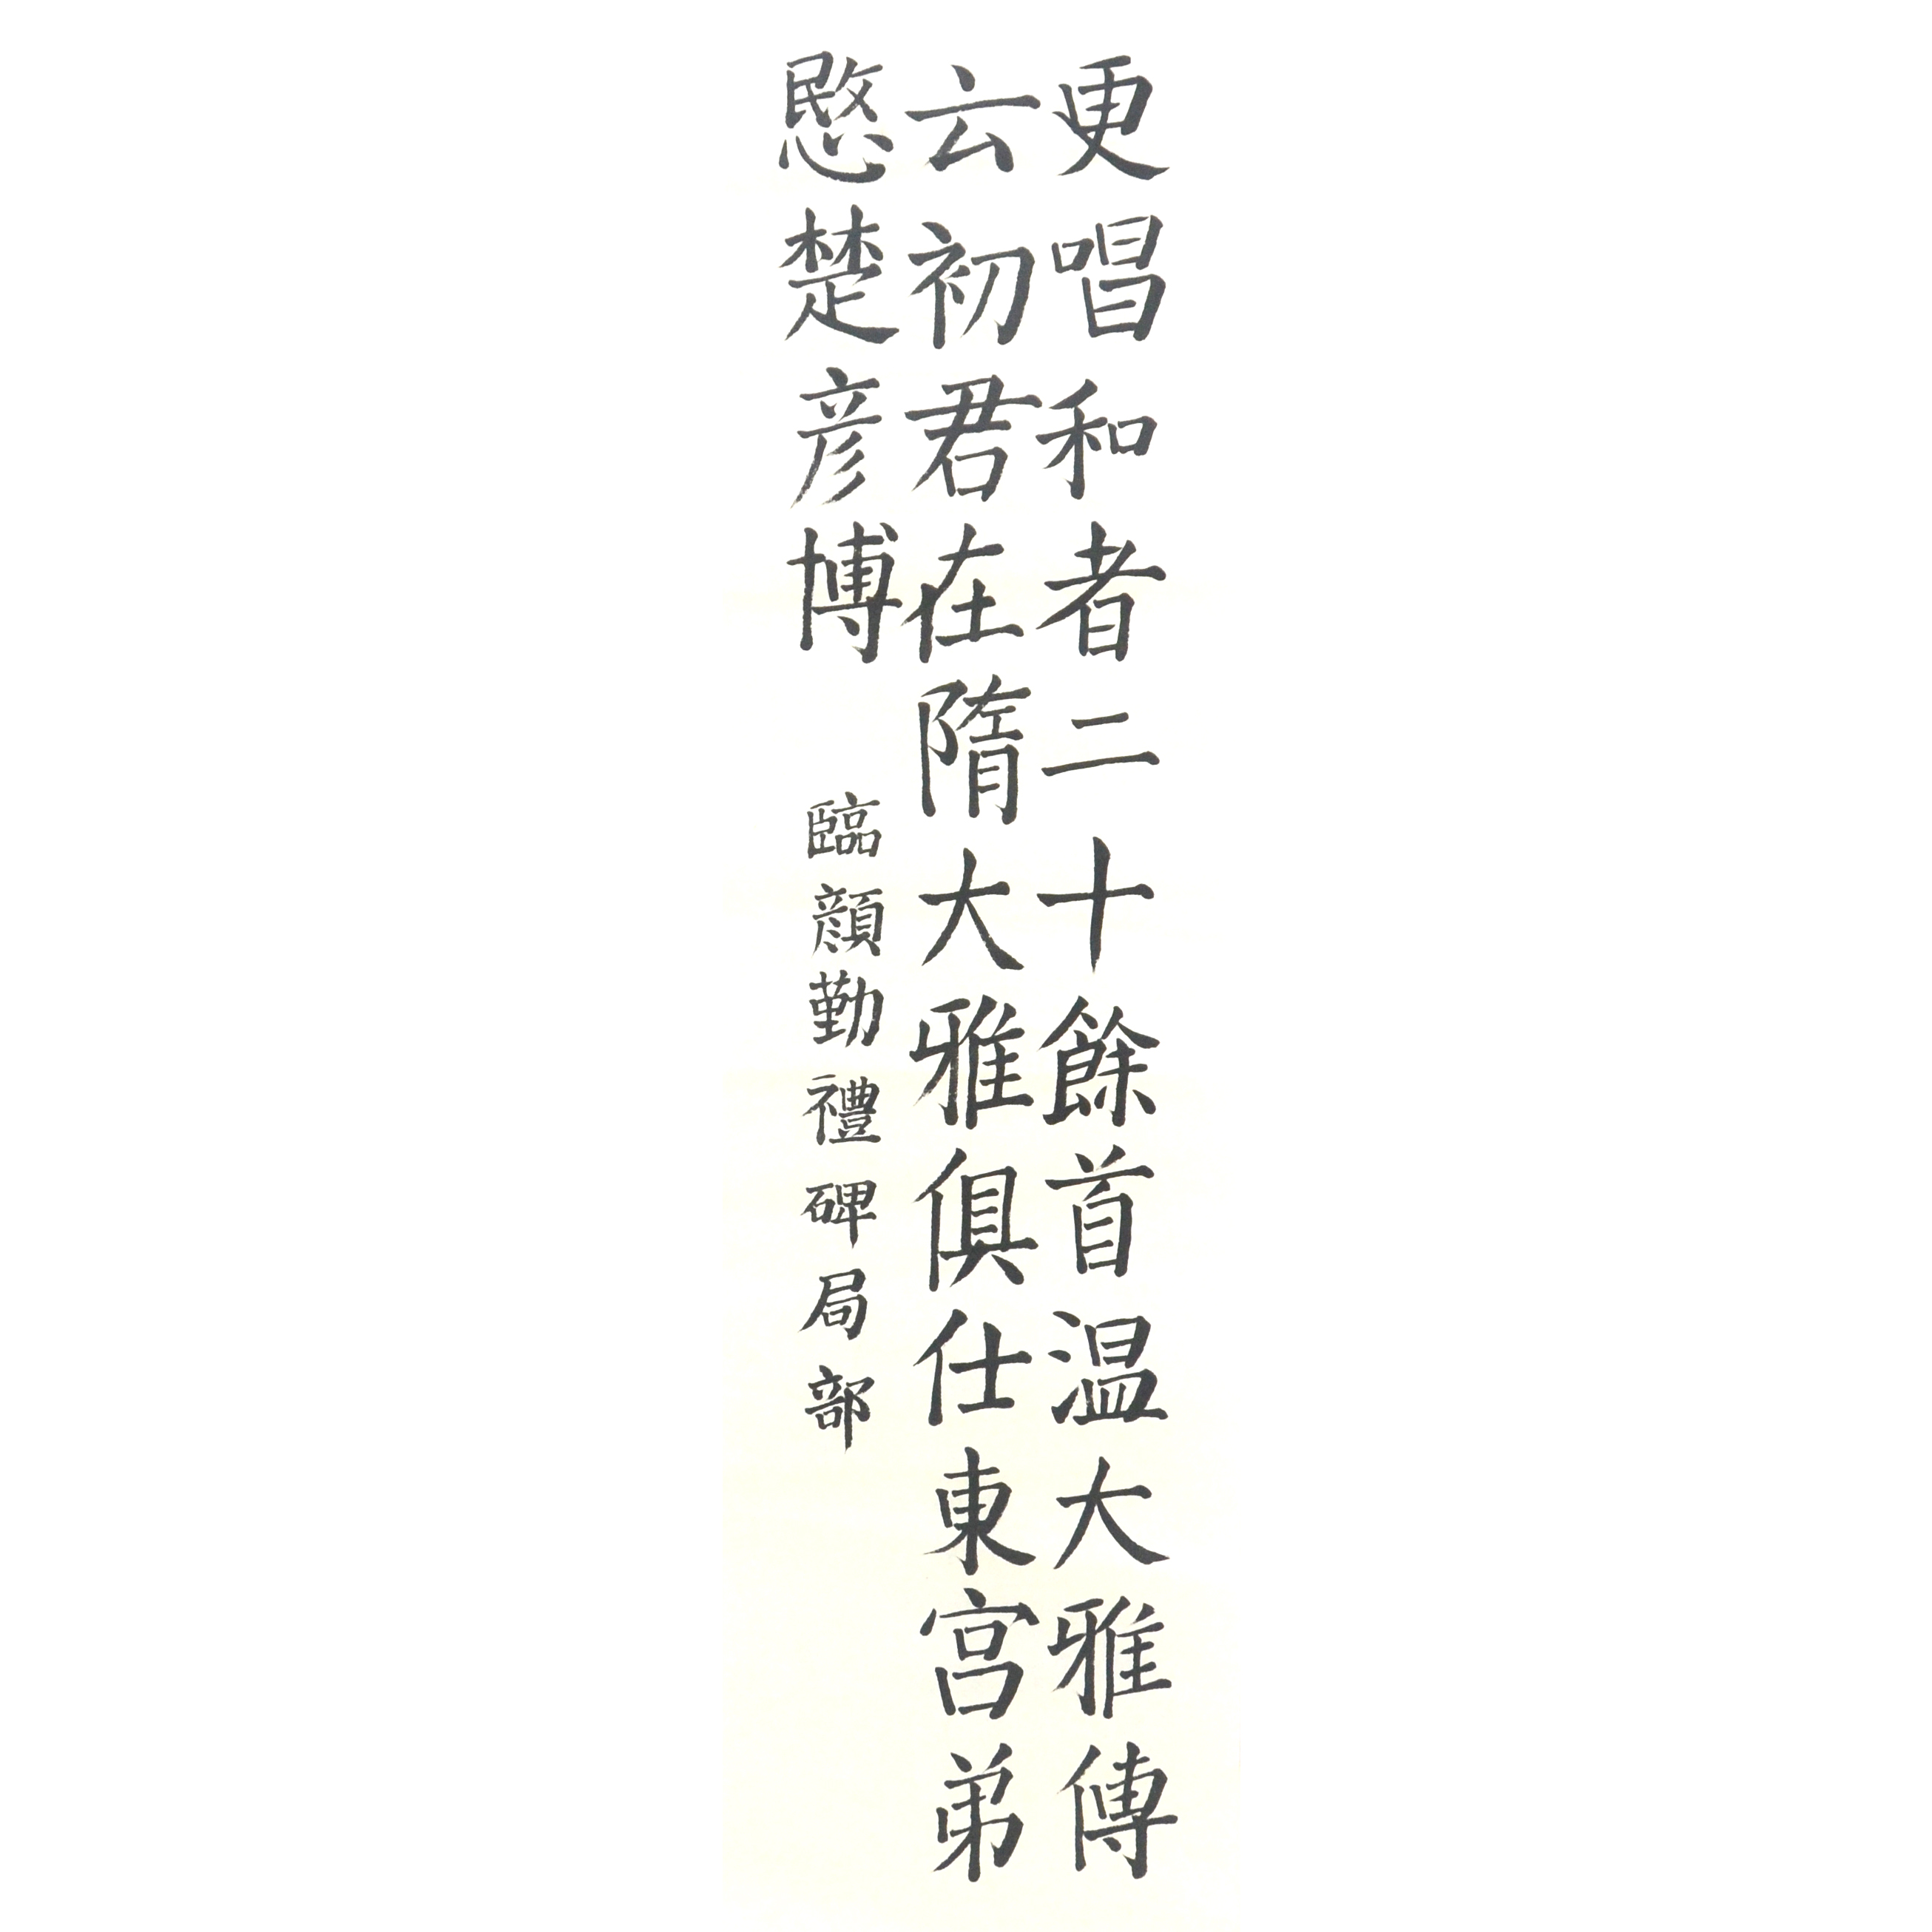 更唱和者二十餘首温大雅傳
云初君在隋大雅俱仕東宫弟
愍楚彦博
臨顔勤禮碑局部